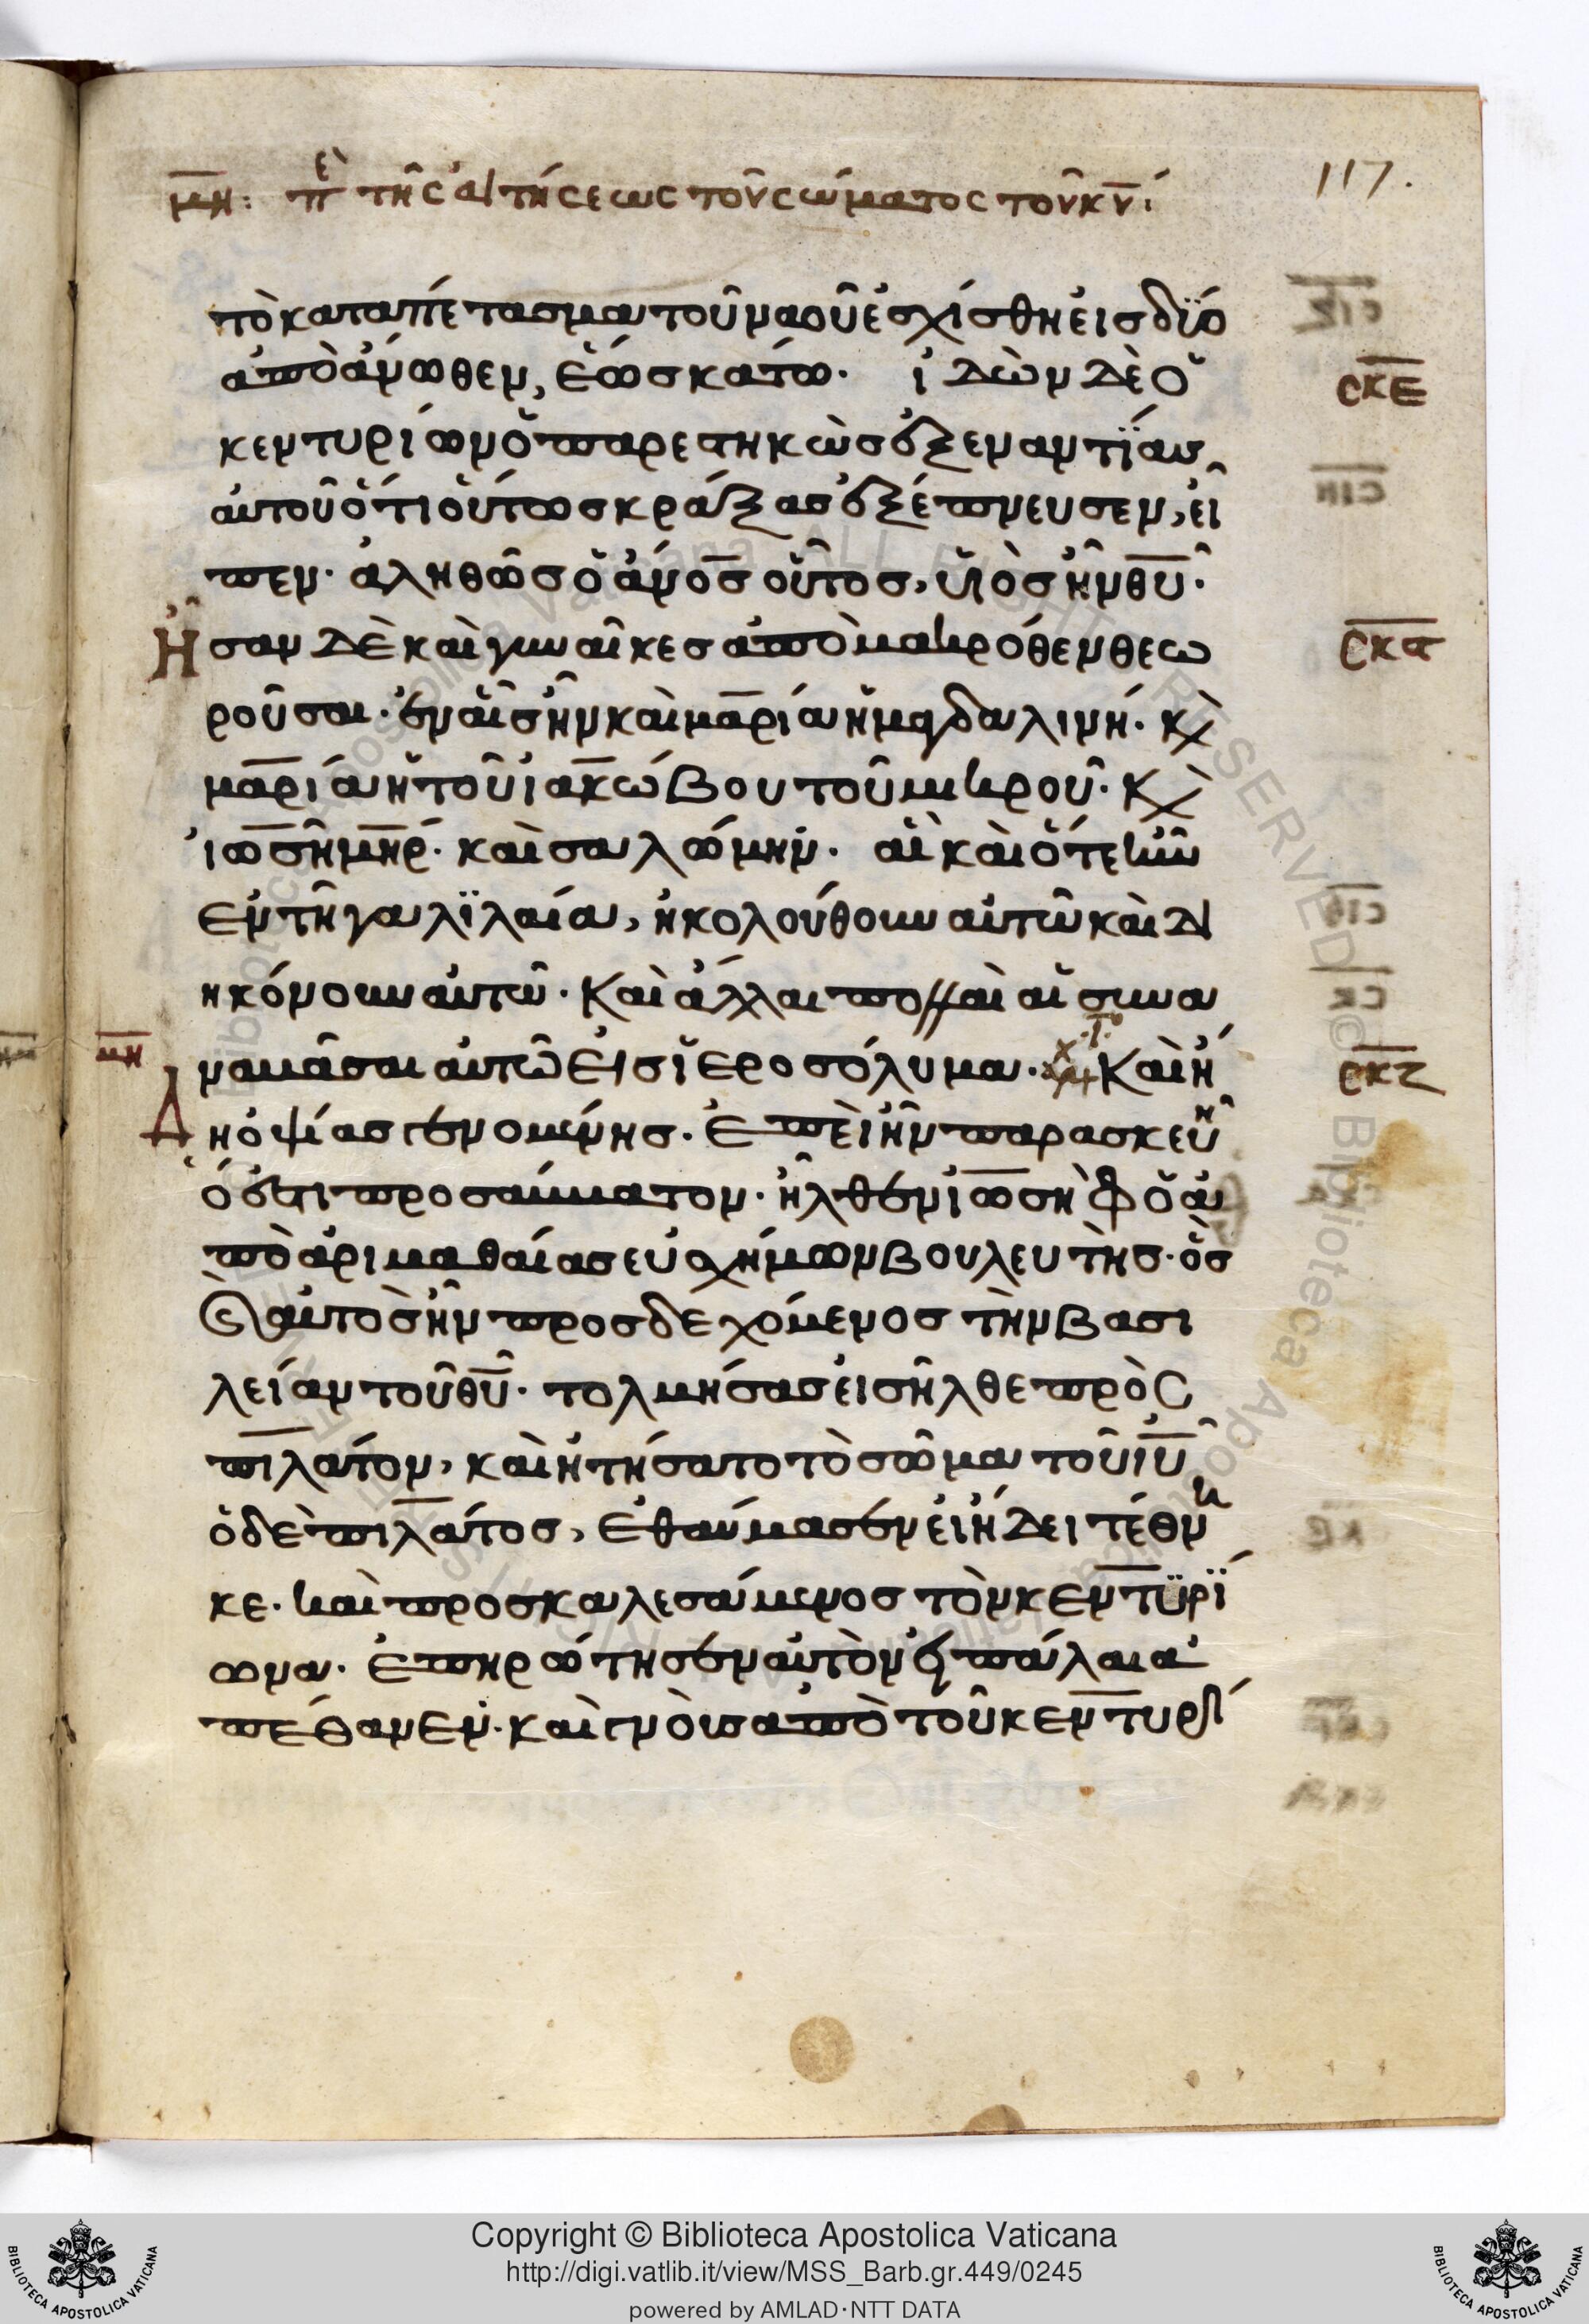 μη: πε τῆς αἰτήσεως τοῦ σώματος τοῦ κυ:
117.
τὸ καταπέτασμα τοῦ ναοῦ ἐσχίσθη εἰς δϊύο
ἀπὸ ἄνωθεν, ἕως κάτω. ἰδὼν δὲ ὁ
σκε
κεντυρίων ὁ παρεστηκὼς ἐξεναντΐας
αὐτοῦ ὅτι οὕτως κράξας ἐξέπνευσεν, εἶ
πεν. ἀληθῶς ὁ ἄνος οὗτος, υἱὸς ἦν θυ.
Ἦσαν δὲ καὶ γυναῖκες ἀπὸ μακρόθεν θεω
σκϛ
ροῦσαι. ἐν αἷς ἦν καὶ μαρία ἡ μαγδαλινή. κὶ
μαρία ἡ τοῦ ἰακώβου τοῦ μικροῦ. κὶ
ἰωσῆ μηρ. καὶ σαλώμην. αἳ καὶ ὅτε ἦν
ἐν τῆ γαλϊλαία, ἠκολούθουν αὐτῶ καὶ δι
ηκόνουν αὐτῶ. καὶ ἄλλαι πολλαὶ αἱ συνα
μη
ναμᾶσαι αὐτῶ εἰς ἱεροσόλυμα. Καὶ ἤ
σκζ
Δη ὀψίας γενομένης. ἐπεὶ ἦν παρασκευῆ
ὅ ἐστι προσάμματον. ἦλθεν ἰωσὴφ ὁ ἀ
πὸ ἀριμαθαίας εὐσχήμων βουλευτὴς. ὃς
καὶ αὐτὸς ἦν προσδεχόμενος τὴν βασι
λείαν τοῦ θυ. τολμήσας εἰσῆλθε πρὸς
πιλάτον, καὶ ἠτήσατο τὸ σῶμα τοῦ ιυ
ὁ δὲ πιλάτος, ἐθαύμασεν εἰ ἤδει τέθνη
κε. καὶ προσκαλεσάμενος τὸν κεντϋρΐ
ωνα. ἐπηρώτησεν αὐτὸν εἰ πάλαι ἀ
πέθανεν. καὶ γνὸυς ἀπὸ τοῦ κεντυρί
Copyright © Biblioteca Apostolica Vaticana
http://digi.vatlib.it/view/MSS_Barb.gr.449/0245
powered by AMLAD·NTT DATA
BIBLIOTECA APOSTOLICA VATICANA
BIBLIOTECA APOSTOLICA VATICANA